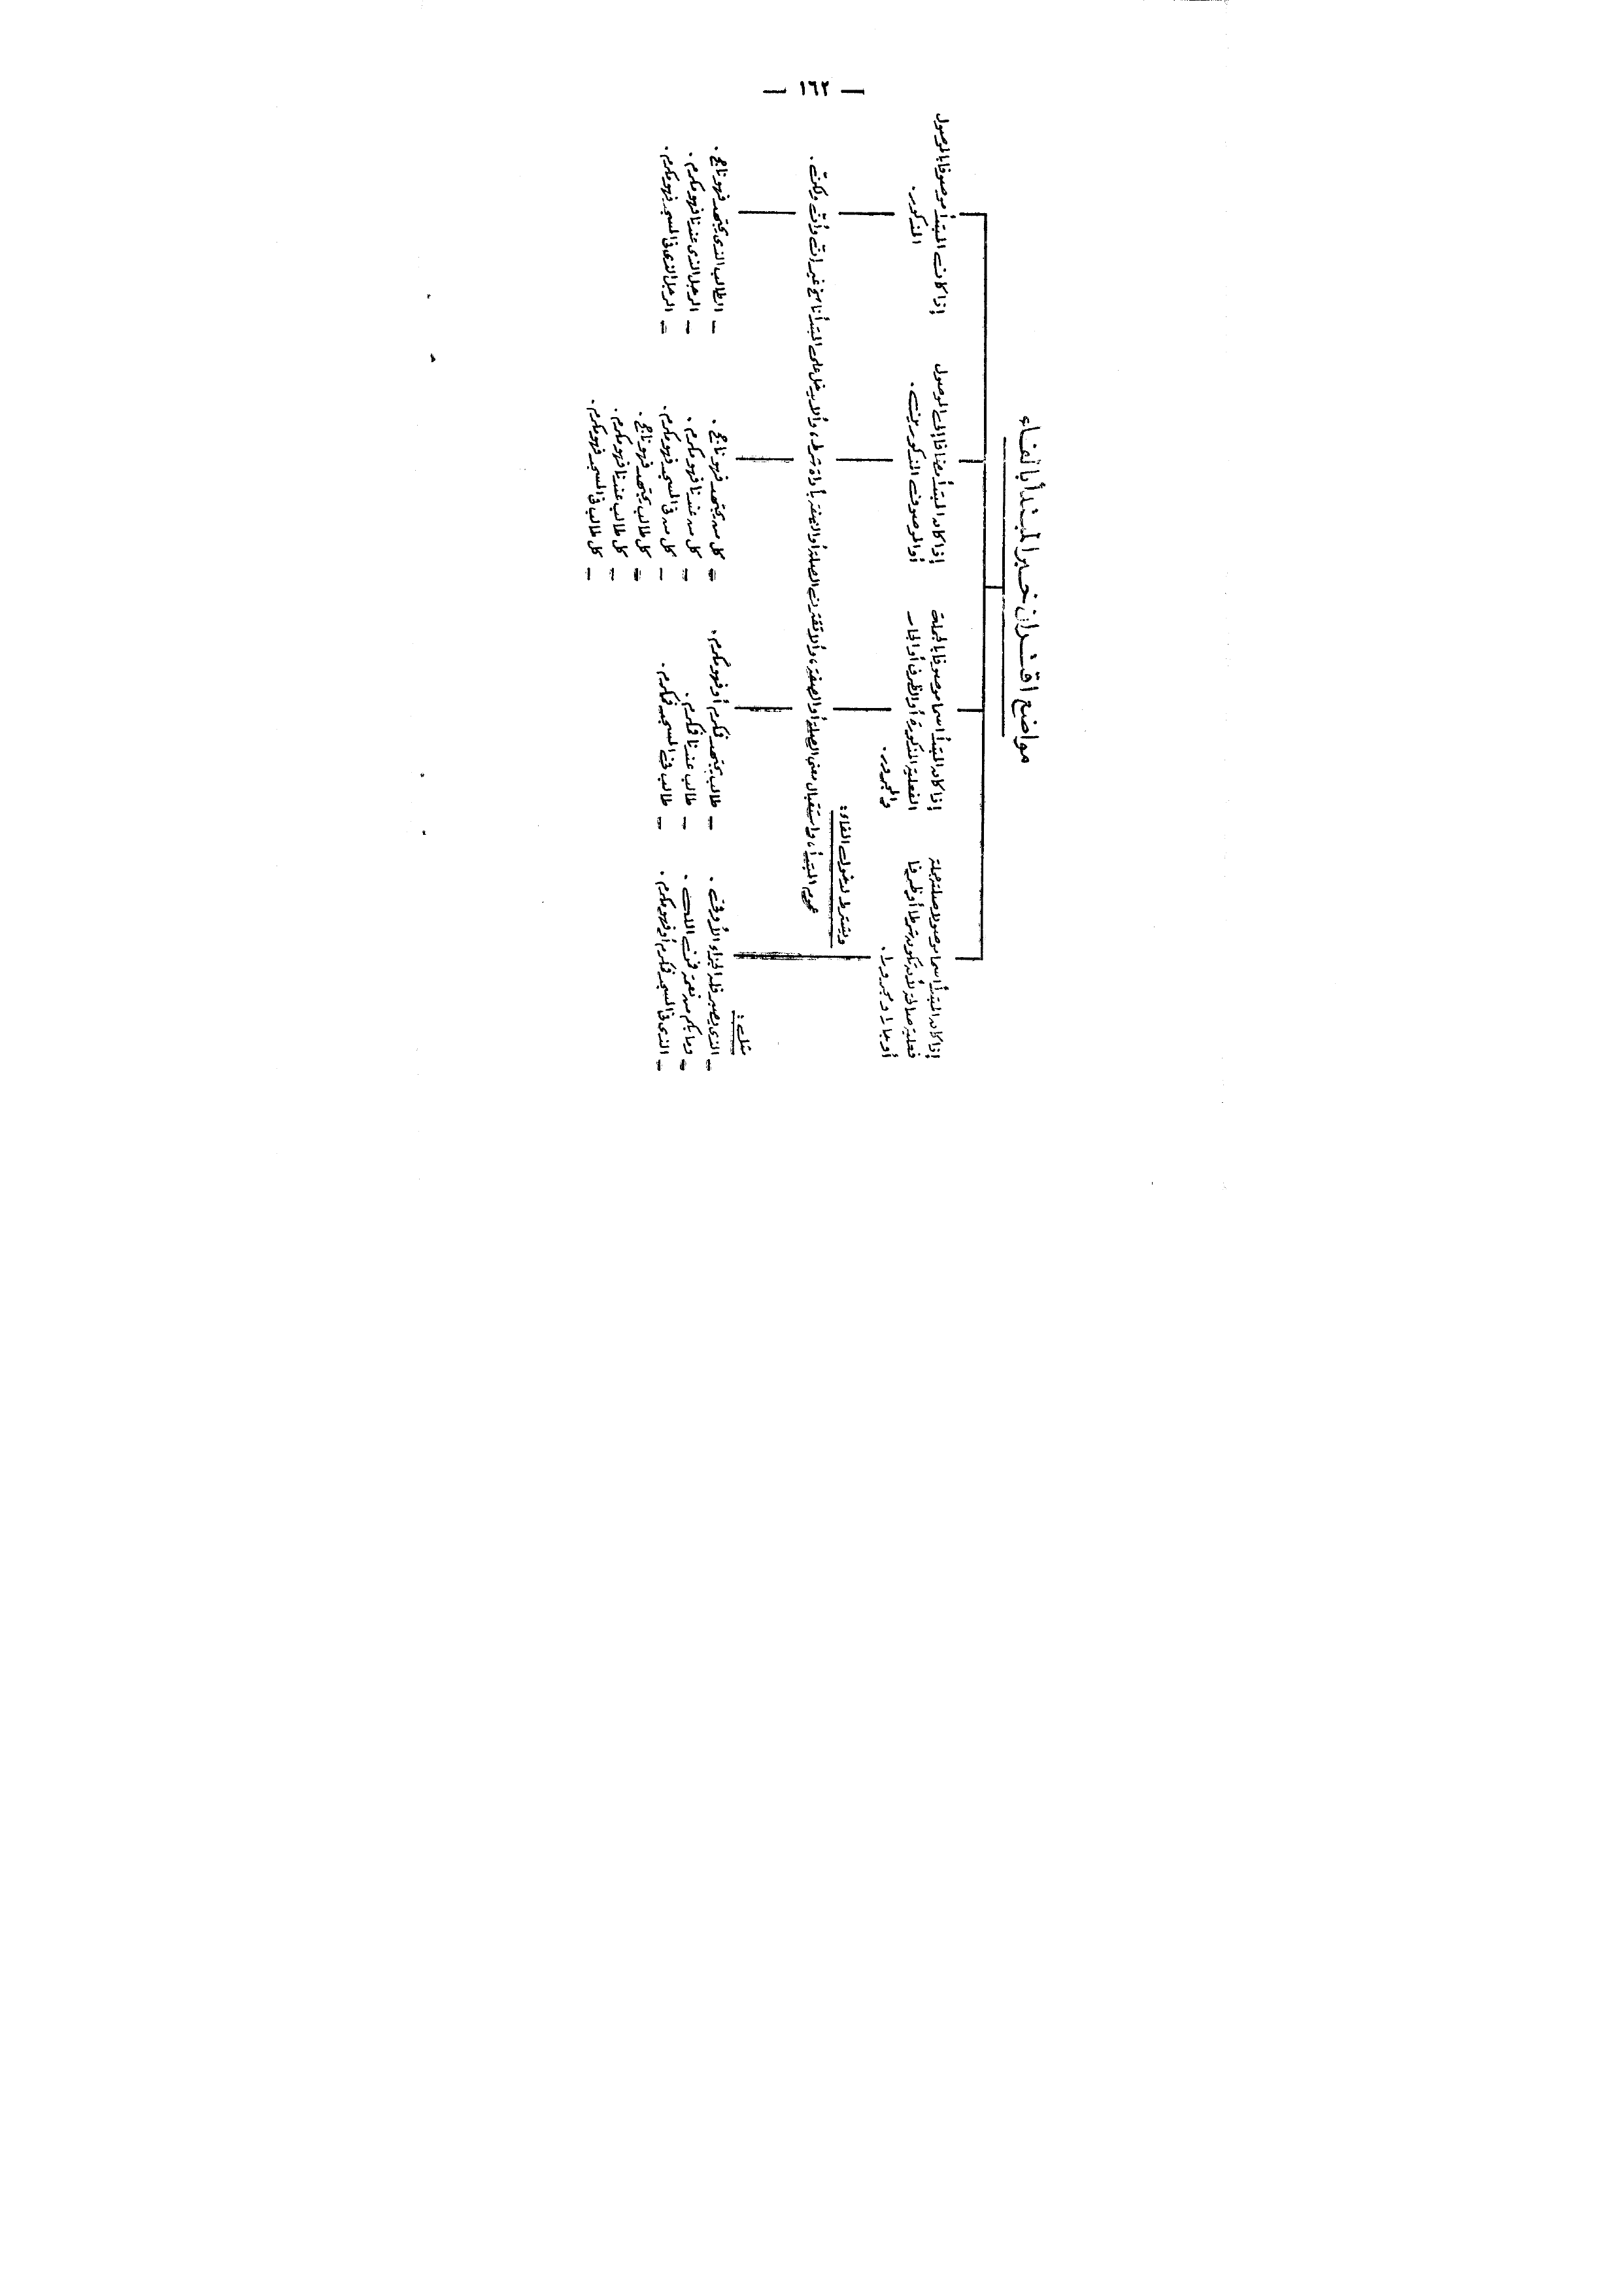 — ١٦٢ —
مواضع اقتران خبر المبتدأ بالفاء
إذا كان المبتدأ اسما موصولا صلته جملة
فعلية صالحة لأن تكون شرطا أو ظرفا
أو جارا ومجرورا.
إذا كان المبتدأ اسما موصوفا بالجملة
الفعلية المذكورة أو الظرف أو الجار
والمجرور.
إذا كان المبتدأ مضافا إلى الموصول
أو الموصوف المذكورين.
إذا كان المبتدأ موصوفا بالموصول
المذكور.
ويشترط لدخول الفاء:
عموم المبتدأ، واستقبال معنى الصلة أو الصفة، وألا تقترن الصلة أو الصفة بأداة شرط، وألا يدخل على المبتدأ ناسخ غير إنّ وأنّ ولكنّ.
مثل:
– الذى يصبر فله الجزاء الأوفى.
– وما بكم من نعمة فمن الله.
– الذى فى المسجد فمكرم أو فهو مكرم.
– طالب يجتهد فمكرم أو فهو مكرم.
– طالب عندنا فمكرم.
– طالب فى المسجد فمكرم.
– كل من يجتهد فهو ناجح.
– كل من عندنا فهو مكرم.
– كل من فى المسجد فهو مكرم.
– كل طالب يجتهد فهو ناجح.
– كل طالب عندنا فهو مكرم.
– كل طالب فى المسجد فهو مكرم.
– الطالب الذى يجتهد فهو ناجح.
– الرجل الذى عندنا فهو مكرم.
– الرجل الذى فى المسجد فهو مكرم.